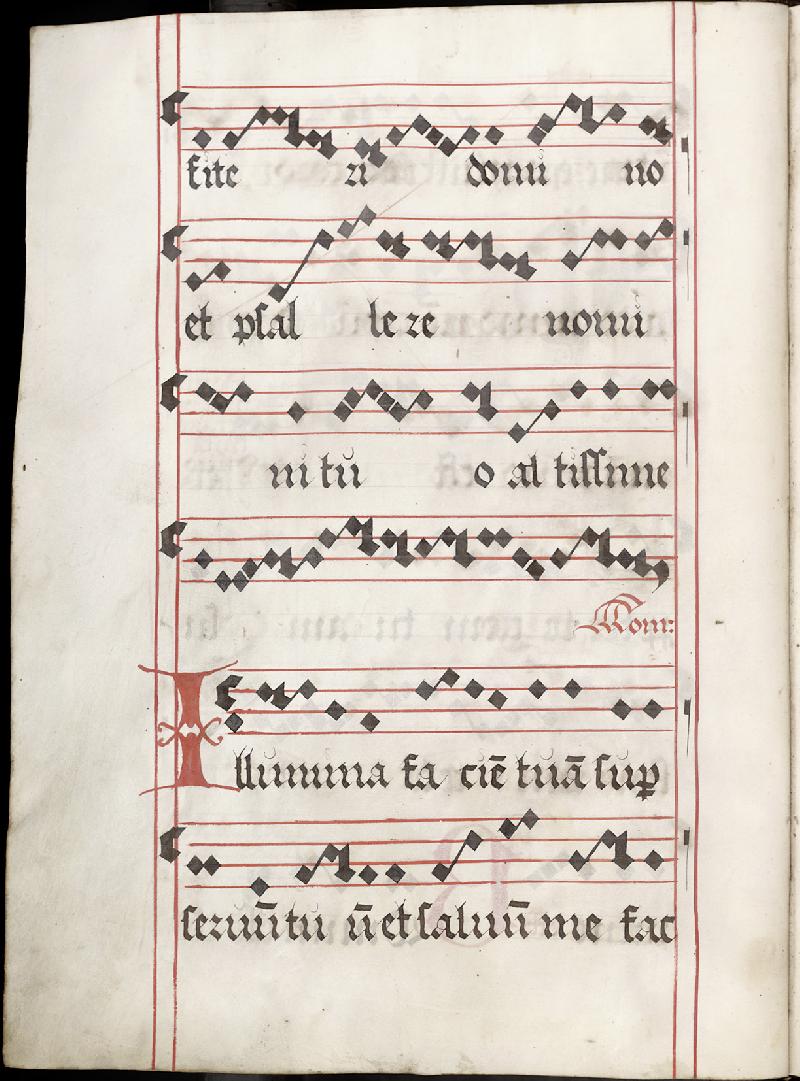 fite ri domi no
et psal lere nomi
ni tu o al tissime
Com:
Illumina fa ciē tuā sup
servū tu ū et salvū me fac